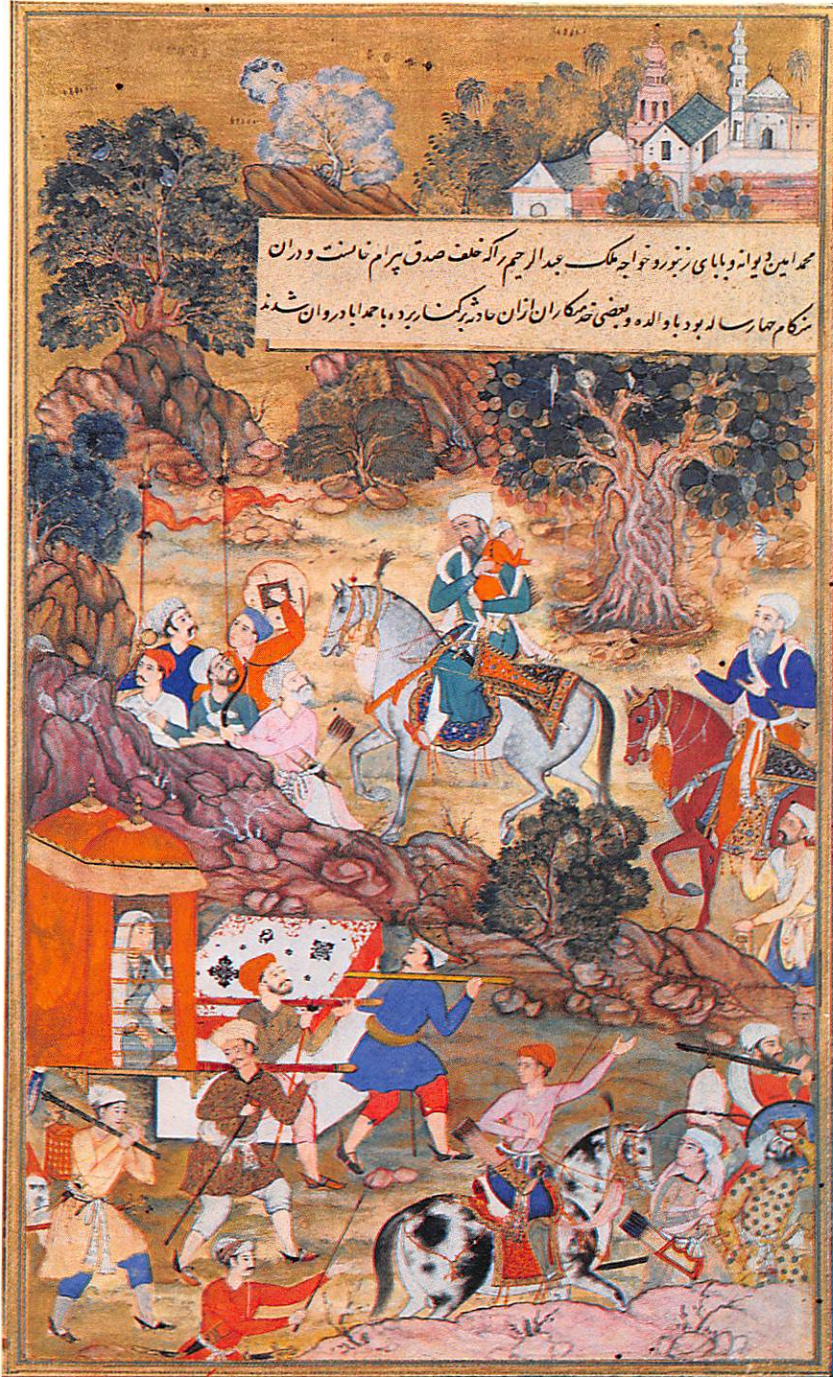 محمد امین دیوانه و بابای زنبور و خواجه ملک عبدالرحیم را که خلف صدق بیرام خانست و دران
هنگام چهار ساله بود با والده و بعضی خدمتکاران ازان حادثه برکنار برده باحمداباد روان شدند